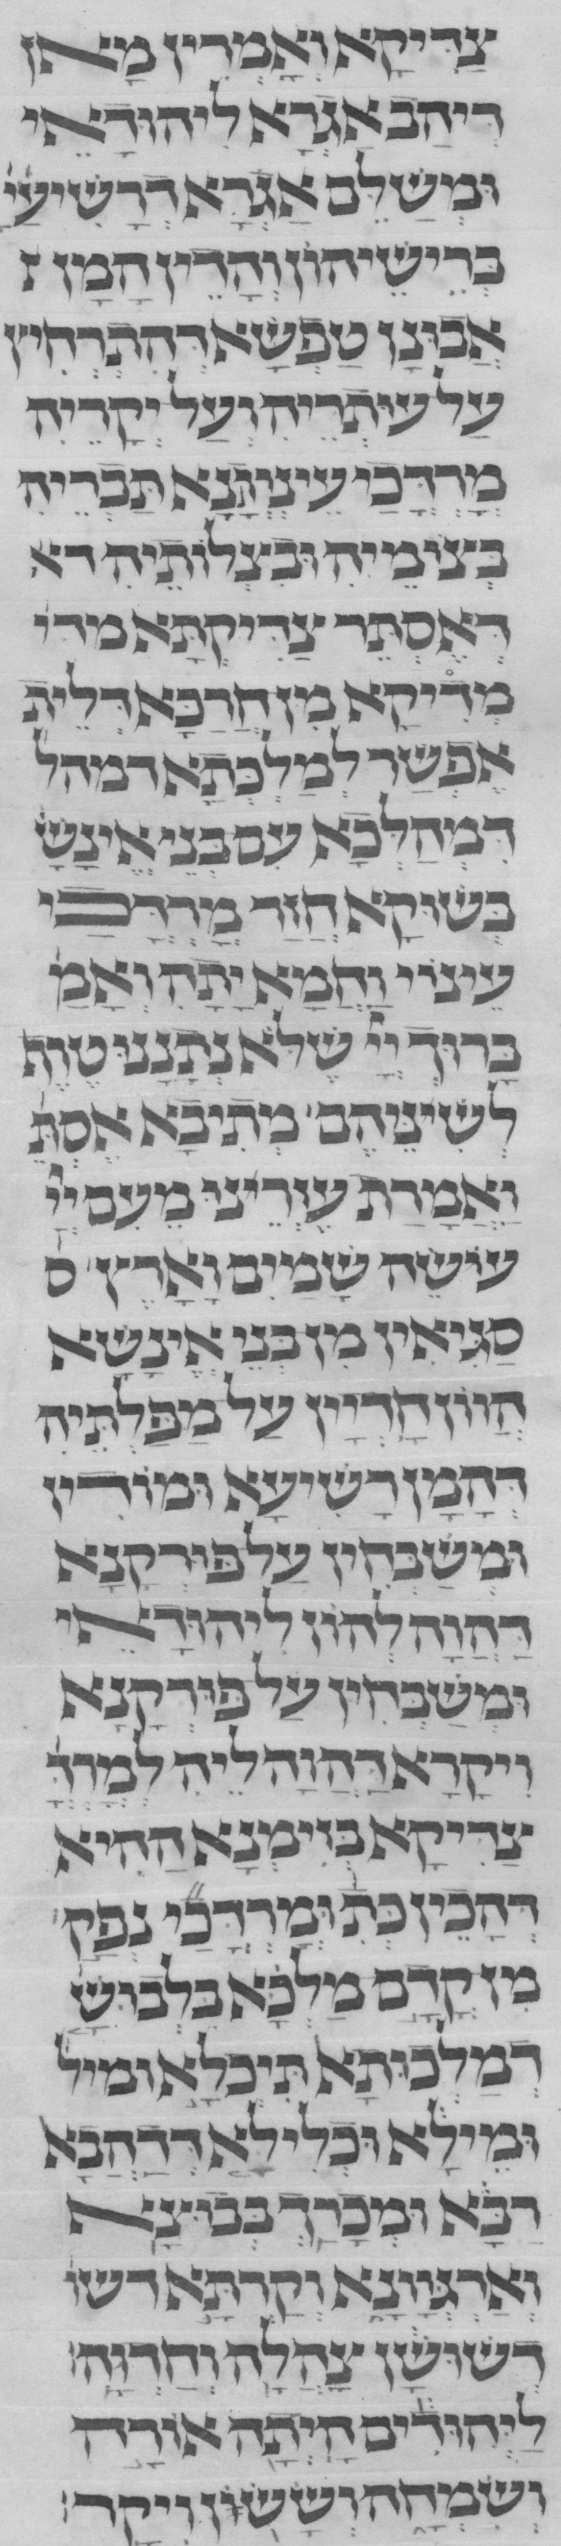 צַדִיקָא וְאָמְרִין מָאן
דְיַהַב אַגְרָא לִיהוּדָאֵי
וּמְשַׁלֵם אַגְרָא דְרַשִׁיעַיָ
בְּרֵישֵׁיהוֹן וְהָדֵין הָמָן
אֲבוּנָן טַפְשָׁא דְּהִתְרְחִיץ
עַל עוּתְרֵיהּ וְעַל יְקָרֵיהּ
מָרְדֳּכַי עִינְוְתָנָא תַּבְרֵיהּ
בְּצוֹמֵיהּ וּבִצְלוֹתֵיהּ דא
דְּאֶסְתֵּר צַדִיקְתָּא מדי
מְדִיקָא מִן חֲרַכָּא דְּלֵית
אֶפְשַׁר לְמַלְכְּתָא דמהל
דִּמְהַלְּכָא עִם בְּנֵי אֱינָשָׁ
בְּשׁוּקָא חֲזַר מָרְדֳּכַי
עֵינוֹי וַחֲמָא יָתַהּ וְאָמַ
בָּרוּךְ יְיָ שֶׁלֹּא נְתָנָנוּ טֶרֶף
לְשִׁינֵּיהֶם׳ מְתִיבָא אֶסְתֵּ
וַאֲמָרַת עֶזְרֵינוּ מֵעִם יְיָ
עוֹשֵׂה שָׁמַיִם וָאָרֶץ׳ ס
סַגִּיאִין מִן בְּנֵי אֱינָשָׁא
הֲווֹן חָדְיָין עַל מַפַּלְתֵּיהּ
דְּהָמָן רַשִׁיעָא וּמוֹדִין
וּמְשַׁבְּחִין עַל פּוּרְקָנָא
דַּהֲוָה לְהוֹן לִיהוּדָאֵי
וּמְשַׁבְּחִין עַל פּוּרְקָנָא
וִיקָרָא דַּהֲוָה לֵיהּ לְמָרְדֳּ
צַדִיקָא בְּזִימְנָא הַהִיא
דְּהָכֵין כְּתִ׳ וּמָרְדֳּכַי נְפַק׳
מִן קֳדָם מַלְכָּא בִלְבוּשָׁ
דְמַלְכוּתָא תִּיכְלָא ומיל
וּמֵילָא וּכְלִילָא דְּדַהֲבָא
רַבָּא וּמְכָרַךְ בְּבוּצָא
וְאַרְגְּוָונָא וְקַרְתָּא דשו
דְשׁוּשָׁן צָהֲלָה וְחַדְוָה׃
לַיְּהוּדִים הָיְתָה אוֹרָה
וְשִׂמְחָה וְשָׂשׂוֹן וִיקָר׃